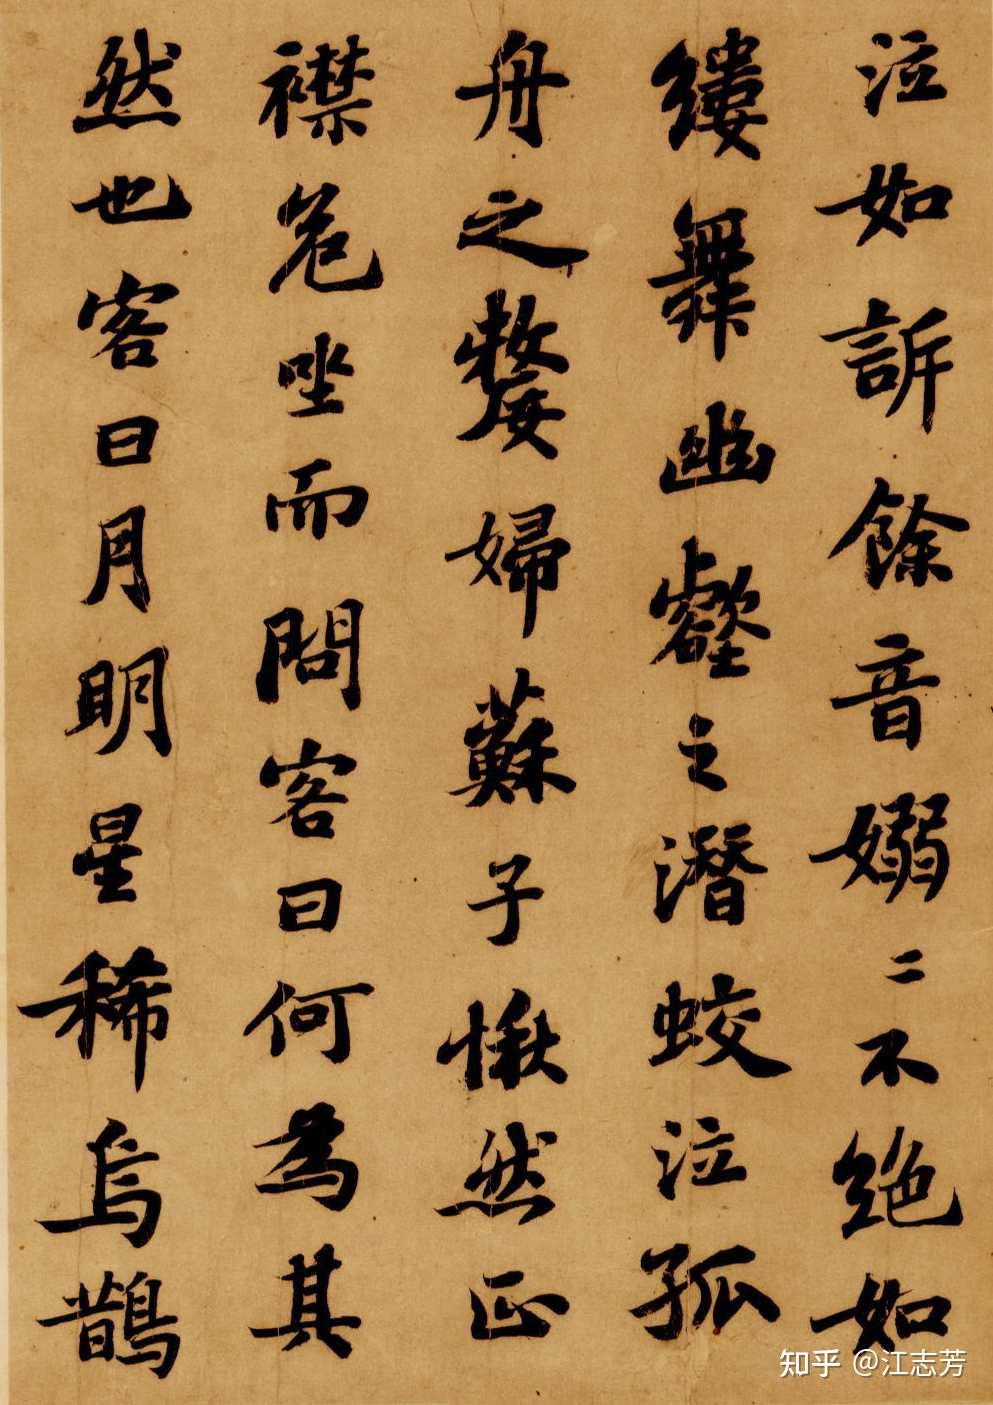 泣如訴餘音嫋二不絕如
縷舞幽壑之潛蛟泣孤
舟之嫠婦蘇子愀然正
襟危坐而問客曰何為其
然也客曰月明星稀烏鵲
知乎 @江志芳